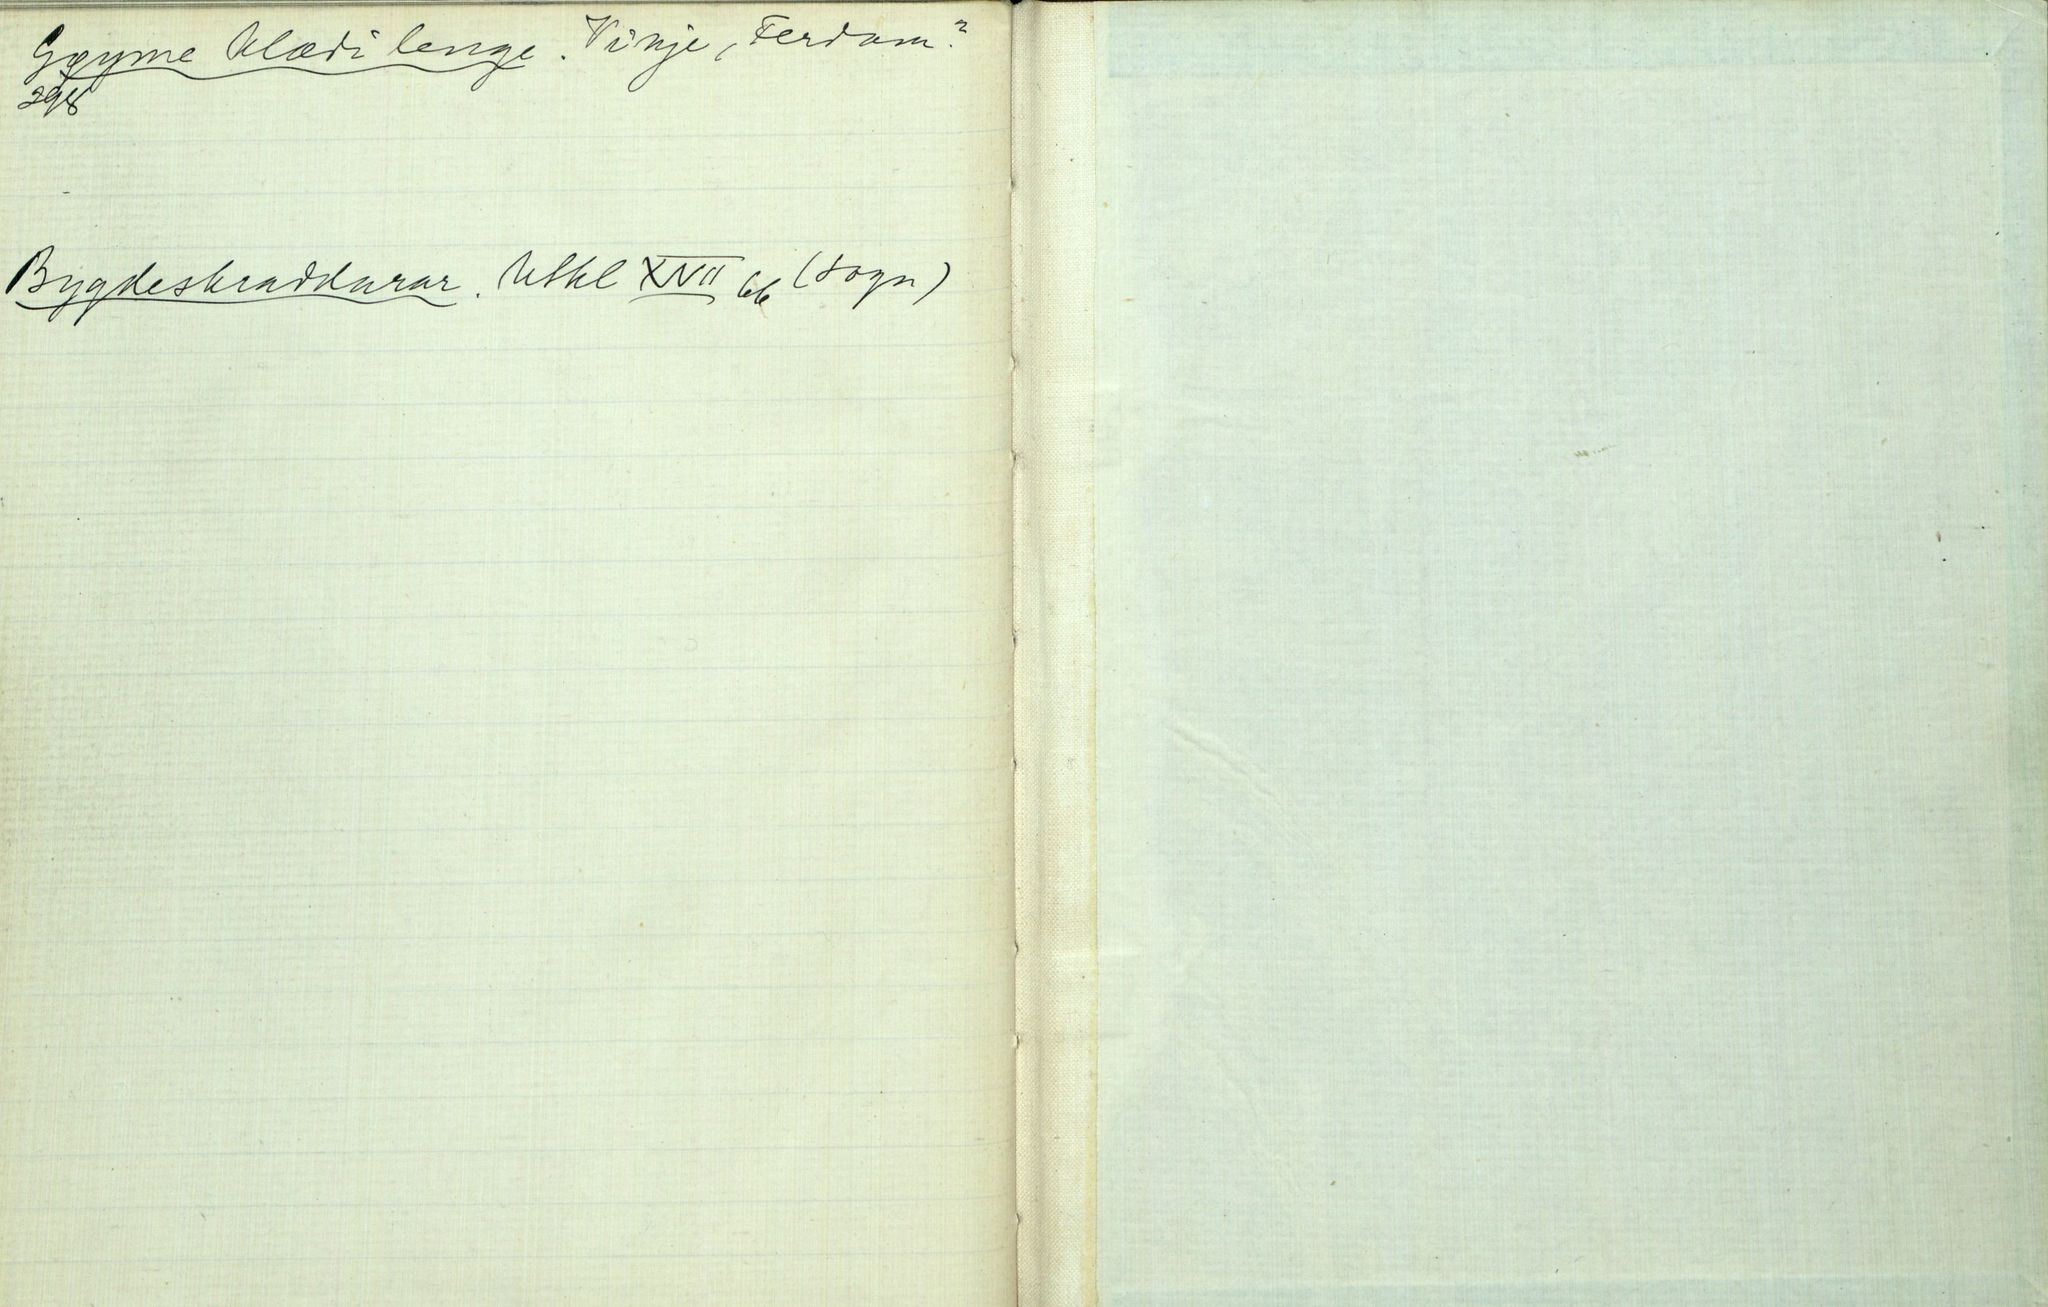 Gøyme klædi lenge. Vinje, Ferdam.²
298
Bygdeskraddarar. Uskl XVII 66 (Sogn)